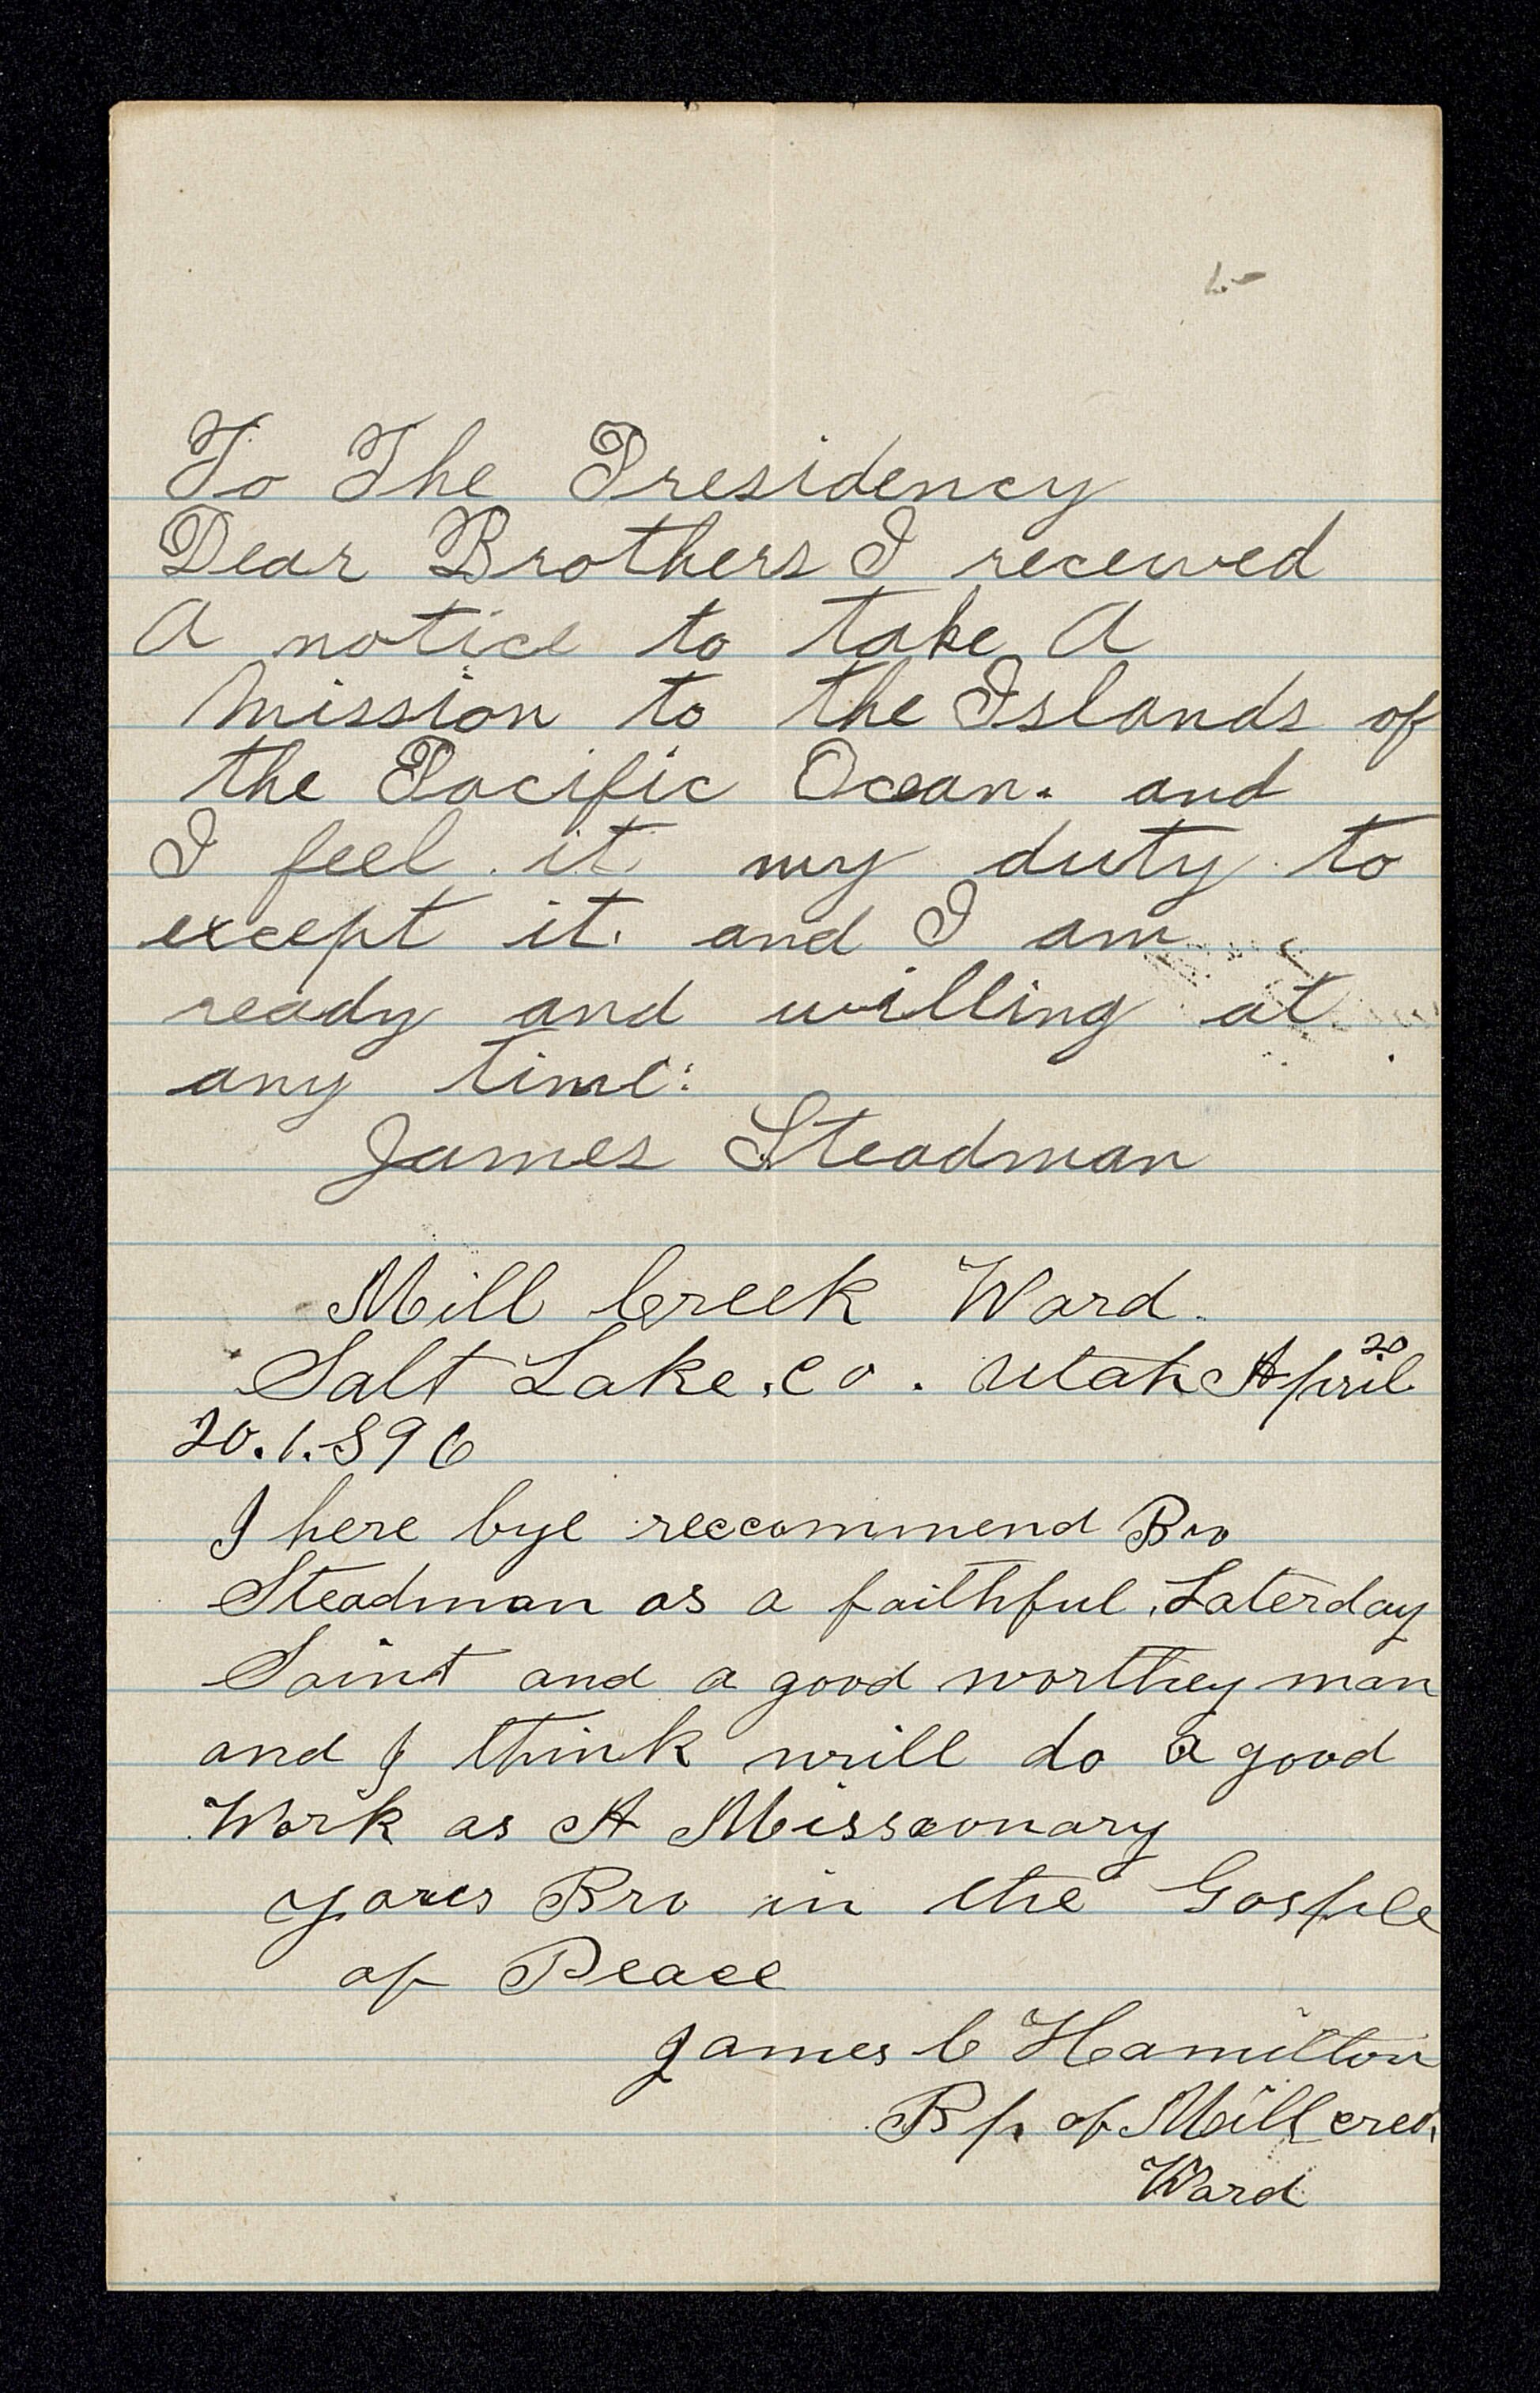 To The Presidency
Dear Brothers I received
A notice to take A
Mission to the Islands of
the Pacific Ocean. and
I feel it my duty to
except it. and I am
ready and willing at
any time:
James Steadman
Mill Creek Ward
Salt Lake.co. Utah April 20
20.1.896
I here bye reccommend Bro
Steadman as a faithful Laterday
Saint and a good worthey man
and I think will do a good
Work as A Missionary
yours Bro in the Gosple
of Peace
James C Hamilton
Bp. of Mill creek
Ward